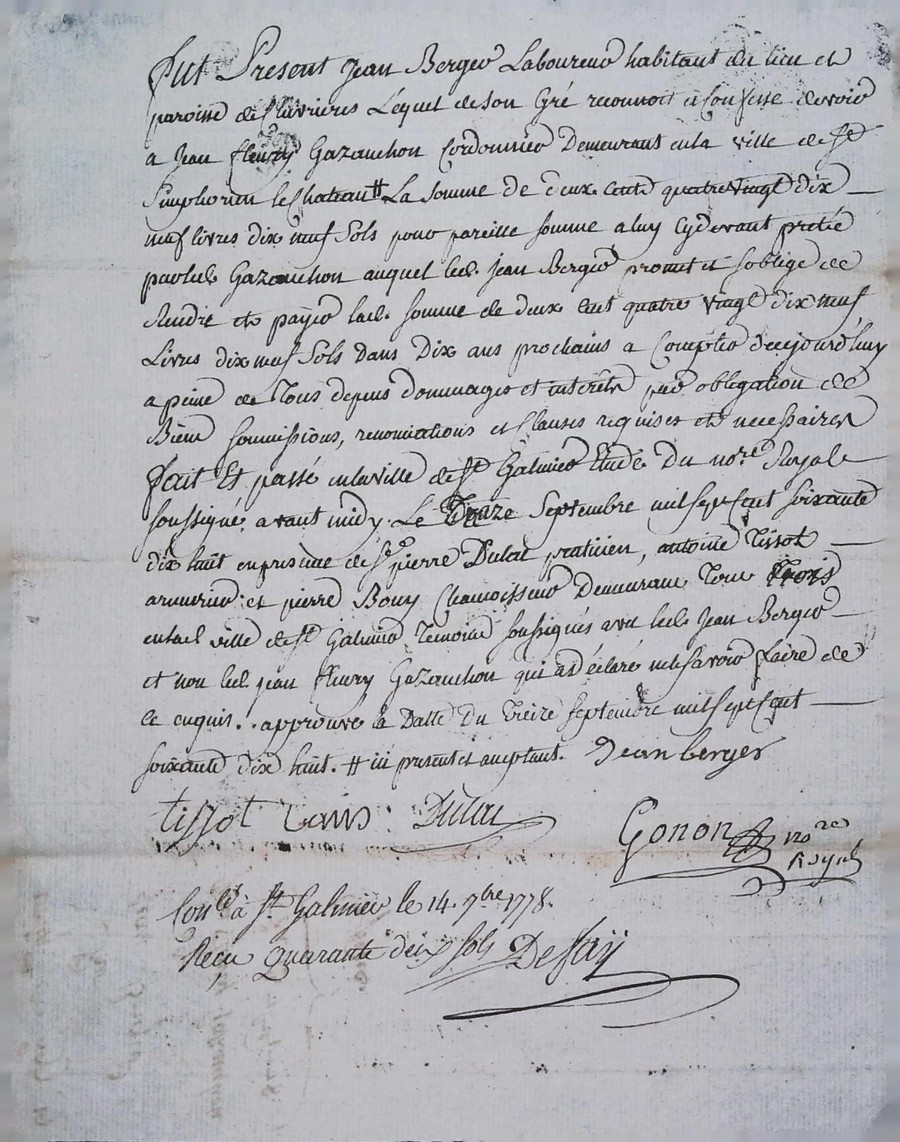 Fut Present Jean Berger Laboureur habitant du lieu et
paroisse de Lequel de son Gré reconnoit et confesse devoir
a Jean fleury Gazanchon Cordonnier Demeurant en la ville de St
Simphorien le Chateau # La somme de deux cent quatre vingt dix
neuf livres dix neuf Sols pour pareille somme a luy cydevant pretée
par led. Gazanchon auquel led. Jean Berger promet et soblige de
Rendre et payer lad. somme de deux cent quatre vingt dix neuf
Livres dix neuf Sols dans Dix ans prochains a Compter decejourd'huy
a peine de Tous depens dommages et interets par obligation de
Biens soumissions, renonciations et Clauses requises et necessaires
fait Et passé en la ville de St Galmier Etude Du nore Royal
soussigné, avant midy. Le Treize Septembre mil sept cent soixante
dix huit en presence de Sr pierre Dulac praticien, antoine Tissot
armurier: et pierre Bouy Chamoisseur Demeurant Tous Trois
en lad. ville de St Galmier Temoins soussignés avec led. Jean Berger
et non led. jean fleury Gazanchon qui a déclaré ne le savoir faire de
ce enquis.. approuve la Datte du treize septembre mil sept cent
soixante dix huit. # ici present et acceptant. Jean berger
tissot Dulac
Gonon nore
Royal
Conlé à St. Galmier le 14. 7bre 1778.
Reçu Quarante deux sols Defay